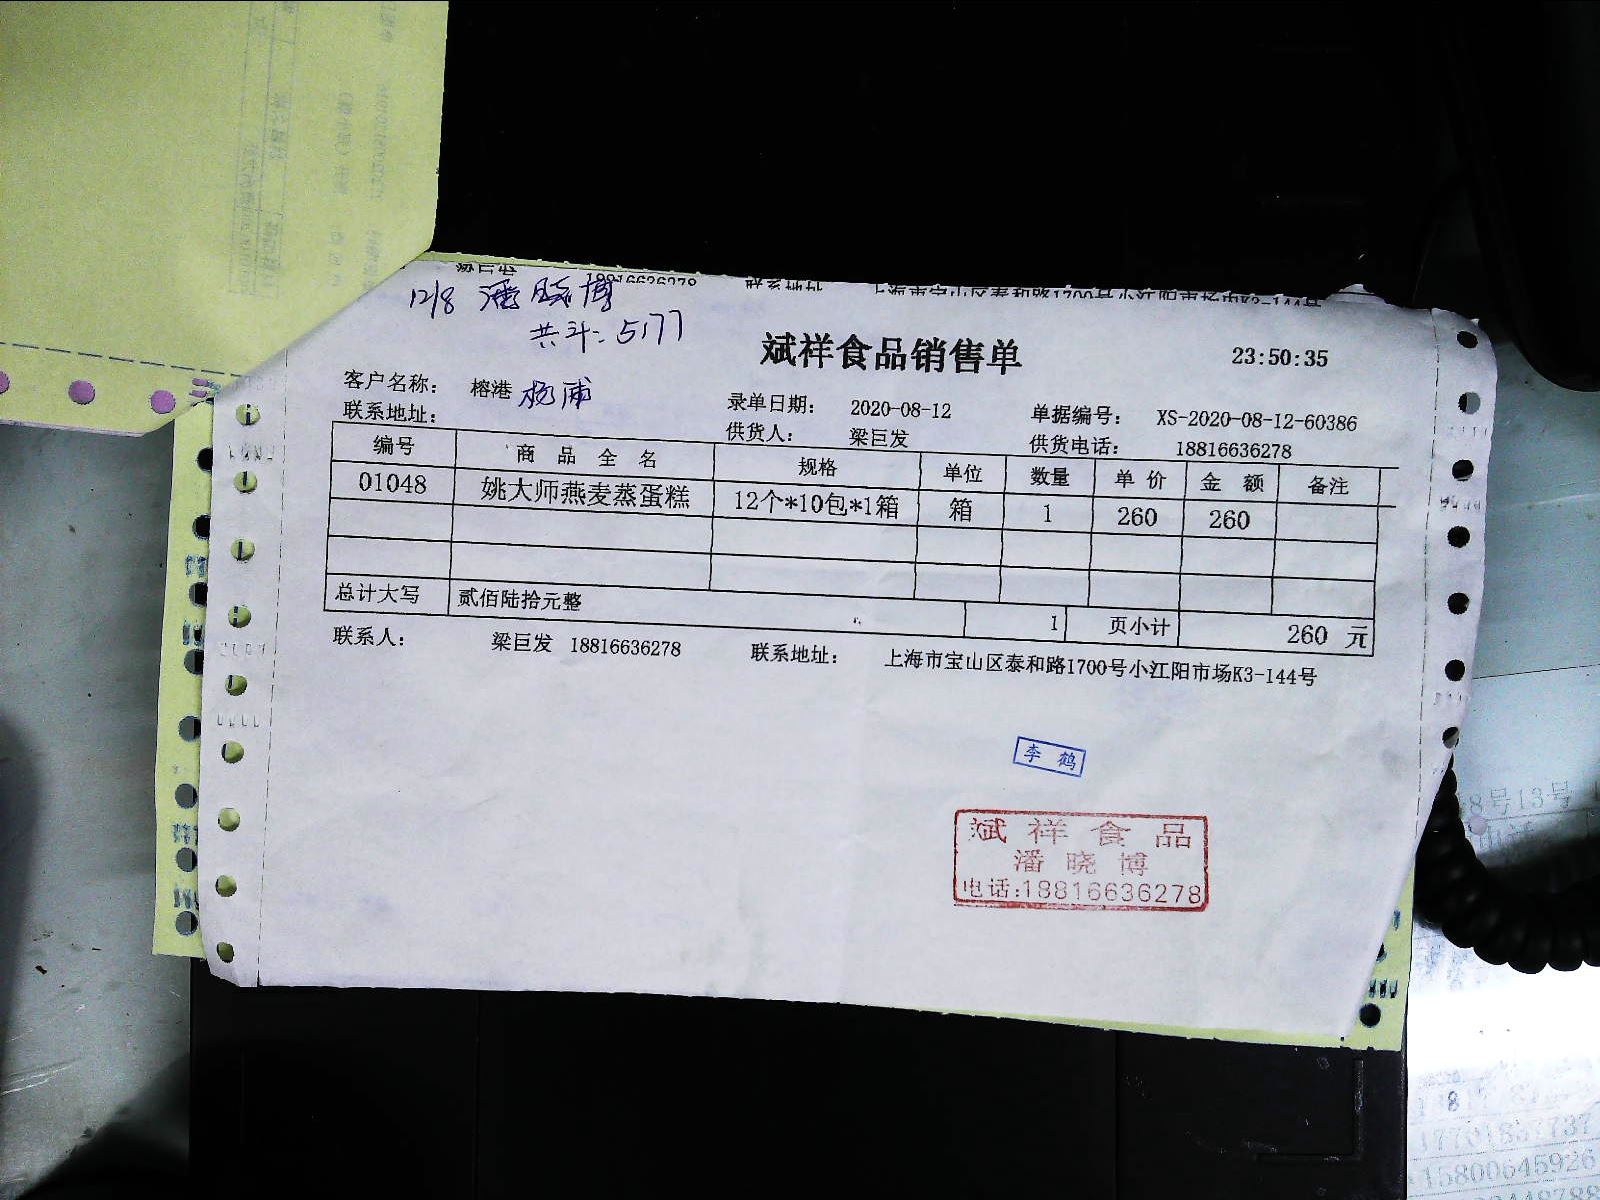 18816636278 联系地址 上海市宝山区泰和路1700号小江阳市场内K3-144号
12/8 潘晓博
共计: 5177
斌祥食品销售单 23:50:35
客户名称: 榕港 杨浦 录单日期: 2020-08-12 单据编号: XS-2020-08-12-60386
联系地址: 供货人: 梁巨发 供货电话: 18816636278
编号 商品全名 规格 单位 数量 单价 金额 备注
01048 姚大师燕麦蒸蛋糕 12个*10包*1箱 箱 1 260 260
总计大写 贰佰陆拾元整 1 页小计 260 元
联系人: 梁巨发 18816636278 联系地址: 上海市宝山区泰和路1700号小江阳市场K3-144号
李鹤
斌祥食品
潘晓博
电话:18816636278
8号13号
15800645926